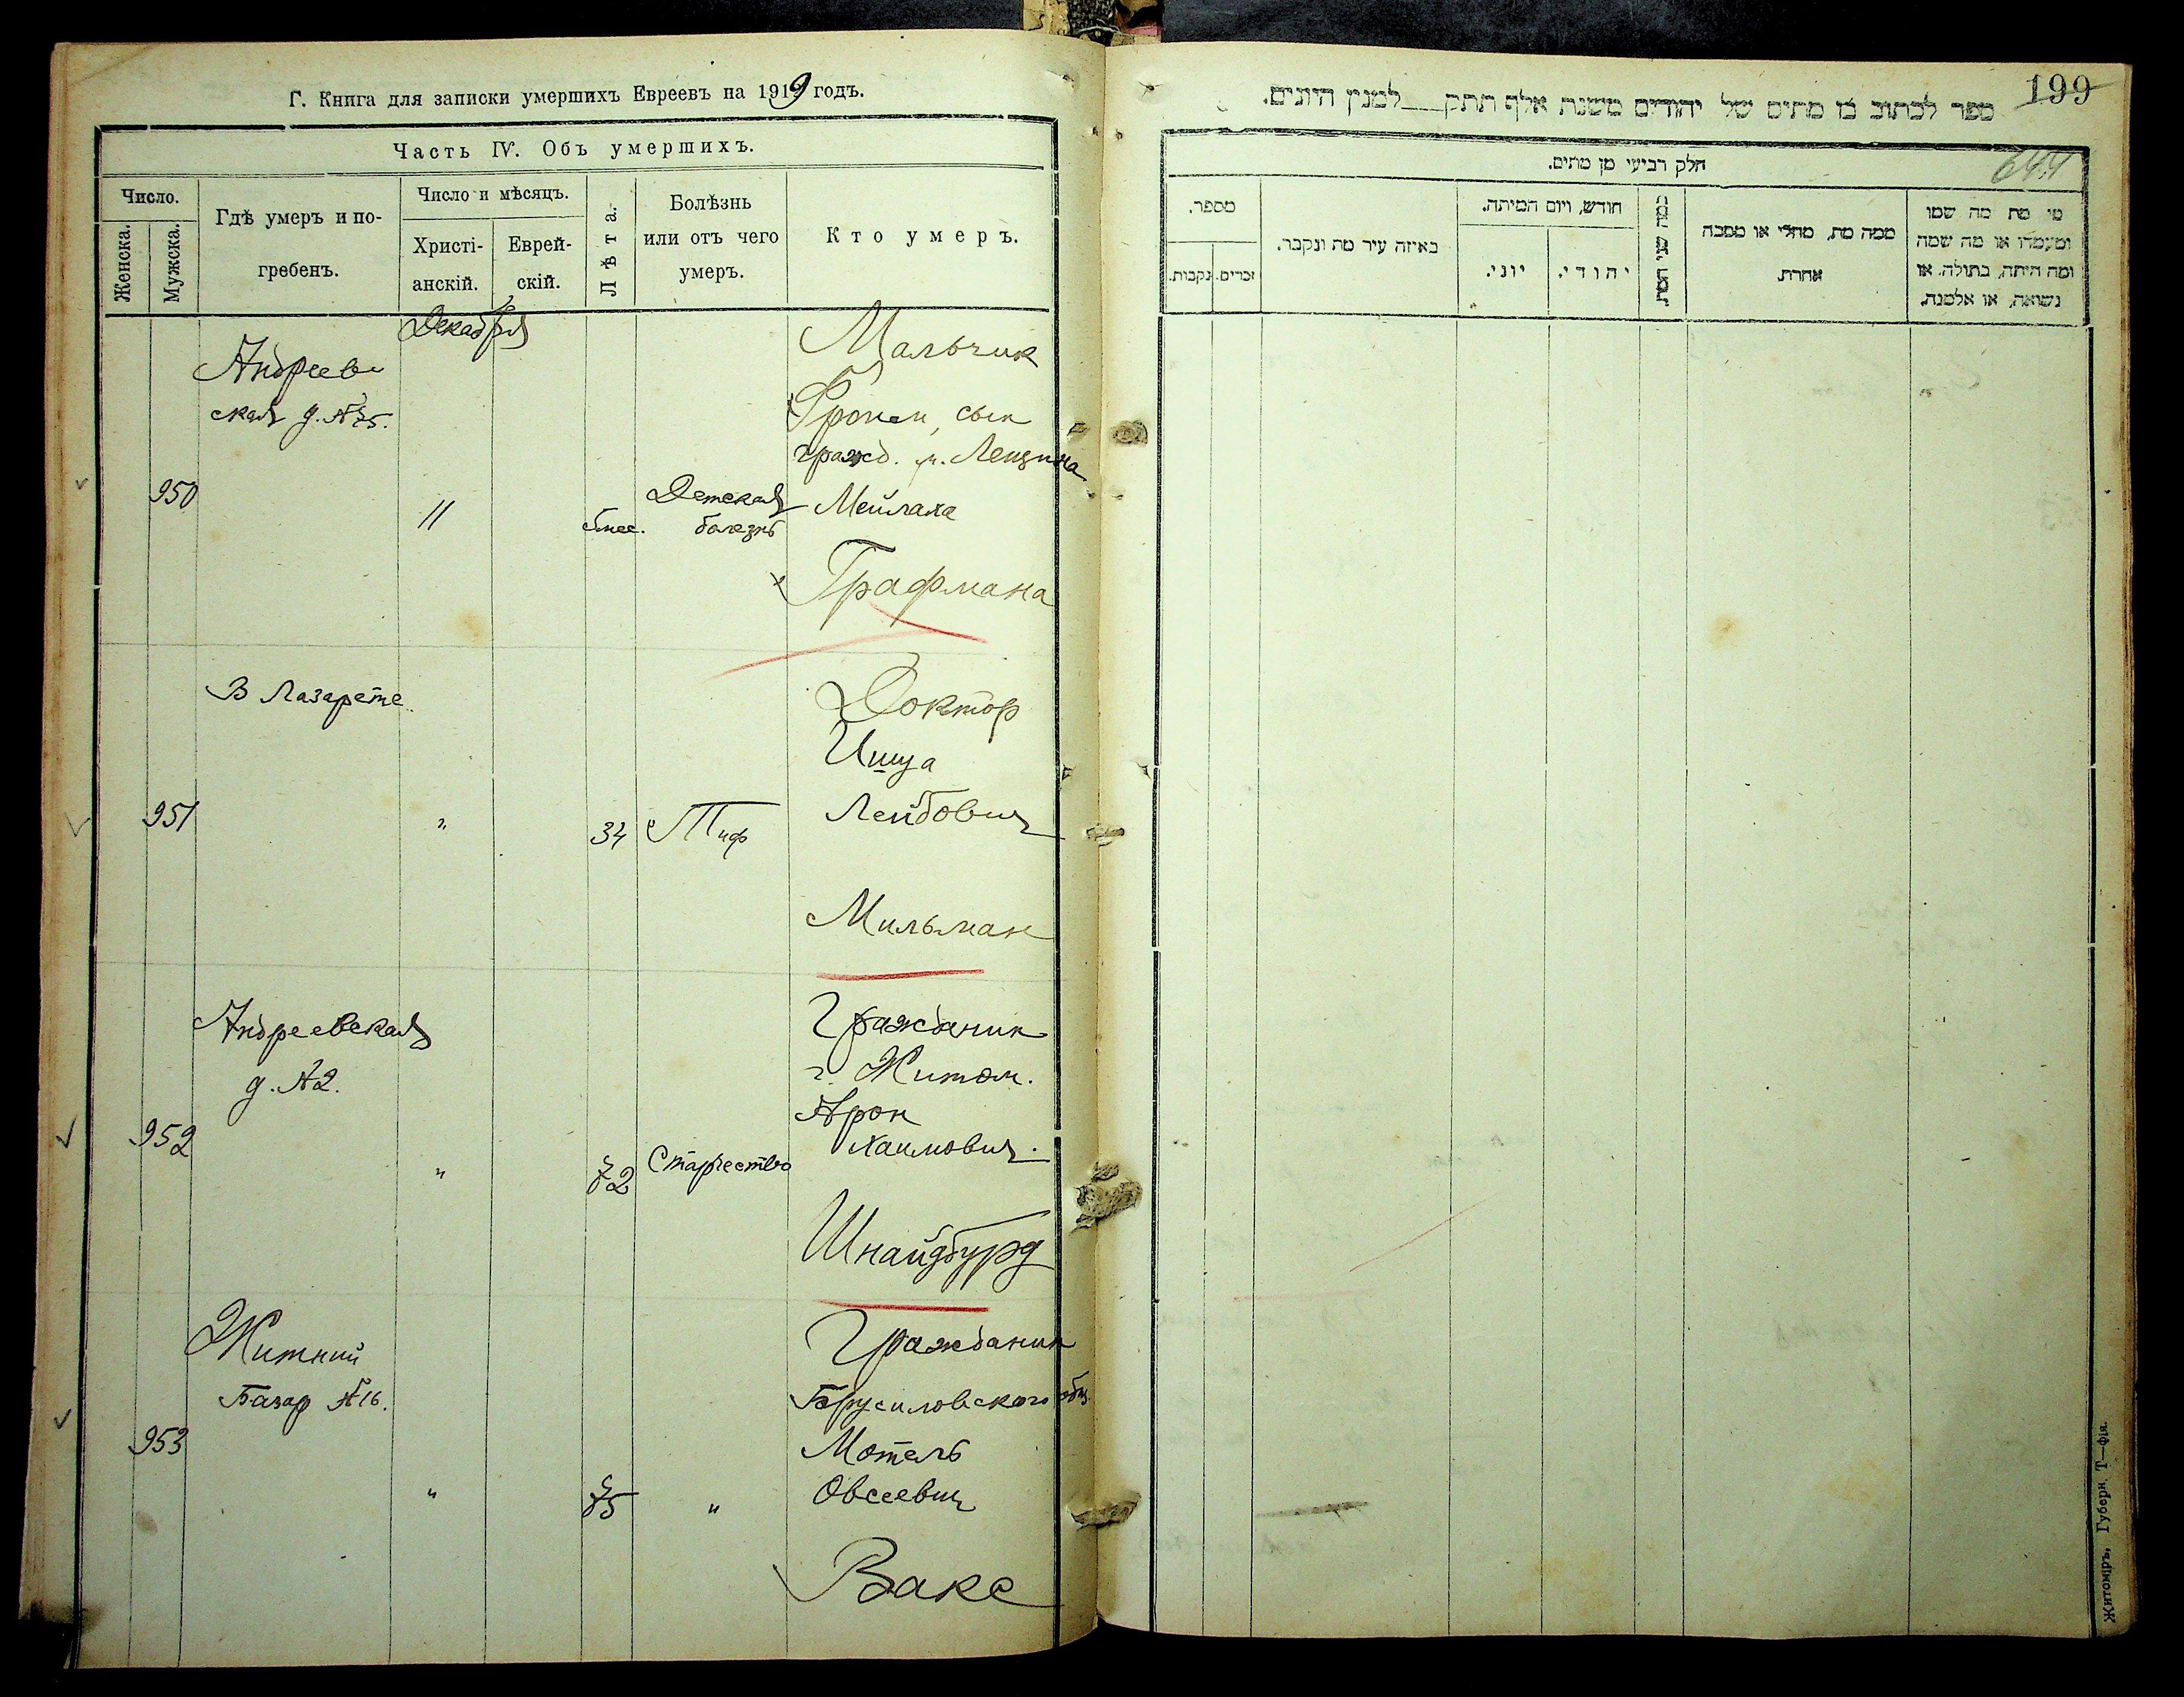 Г. Книга для записки умершихъ Евреевъ на 1919 годъ.
Часть IV. Объ умершихъ.
Число.
Женска.
Мужска.
Гдѣ умеръ и по-
гребенъ.
Число и мѣсяцъ.
Христі-
анскій.
Еврей-
скій.
Лѣта.
Болѣзнь
или отъ чего
умеръ.
Кто умеръ.
Декабря
950
Андреев
ская д. №35.
11
6 мес.
Детская
болезнь
Мальчик
Фроим, сын
гражд. м. Лещина
Мейлаха
Графмана
951
В Лазарете
"
34
Тиф
Доктор
Ицца
Лейбович
Мильман
952
Андреевская
д. №2.
"
72
Старчество
Гражданин
г. Житом.
Арон
Хаимович.
Шнайдбурд
953
Житний
Базар №16.
"
75
"
Гражданин
Брусиловского общ.
Мотель
Овсеевич
Вакс
199
644
ספר לכתוב בו מתים של יהודים משנת אלף תתק לסנין היונים.
חלק רביעי מן מתים.
מי מת מה שמו
ומעמדו או מה שמה
ומה היתה, בתולה, או
נשואה, או אלמנה.
ממה מת, מחלי או מסבה
אחרת.
כמה שני המת.
חודש, ויום המיתה.
יהודי.
יוני.
באיזה עיר מת ונקבר.
מספר.
זכרים.
נקבות.
Житоміръ, Губерн. Т—фія.